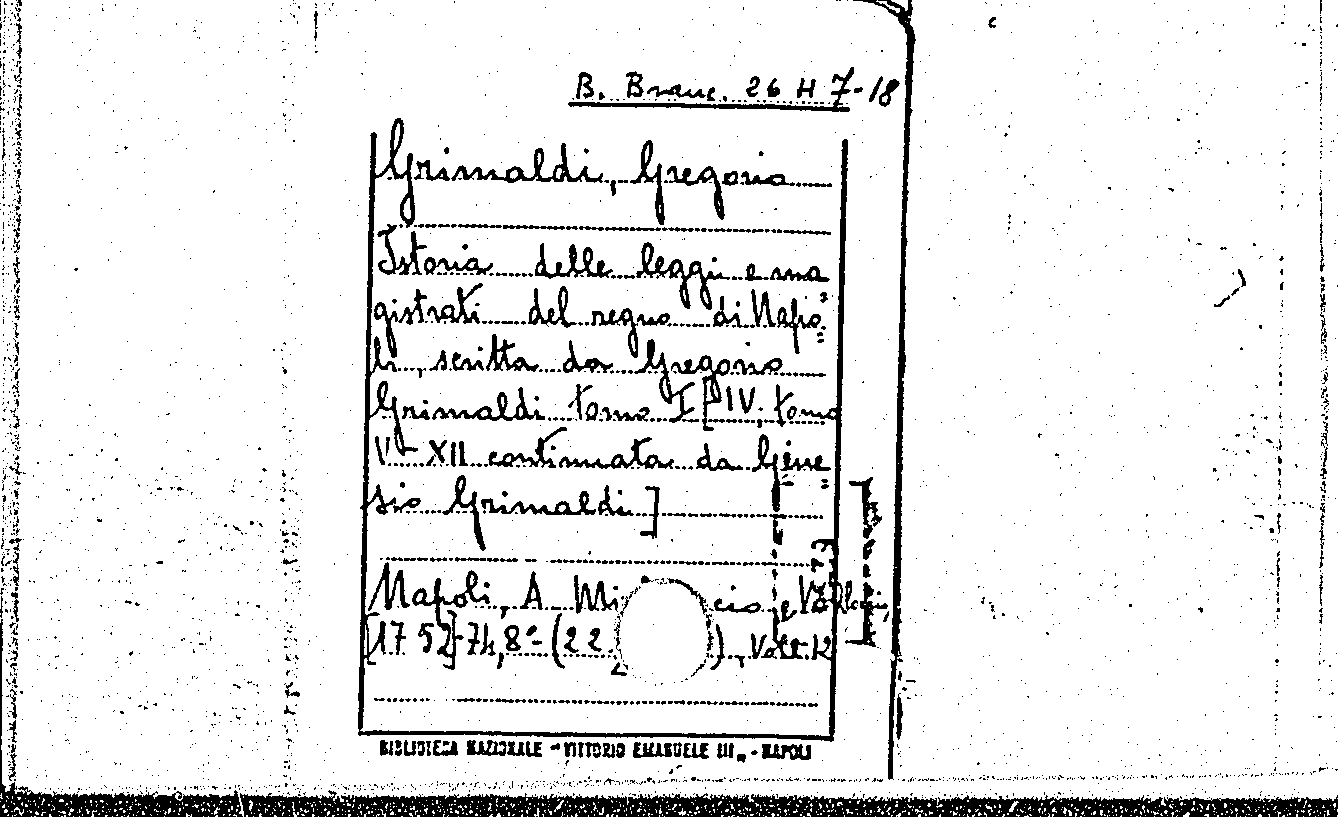 B. Branc. 26 H 7-18
Grimaldi, Gregorio
Istoria delle leggi e ma
gistrati del regno di Napo=
li, scritta da Gregorio
Grimaldi tomo I [IV; tomo
V- XII continuata da Gine=
sio Grimaldi]
Napoli, A. Mi cio, e
[1752]-74, 8°- (22 ), Vol. 12
BIBLIOTECA NAZIONALE "VITTORIO EMANUELE III„ - NAPOLI